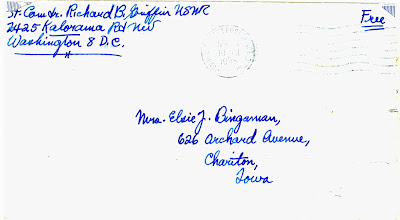 Lt. Comdr. Richard B. Griffin USNR
2425 Kalorama Rd NW
Washington 8 D.C.
Free
Mrs. Elsie J. Bingaman,
626 Orchard Avenue,
Chariton,
Iowa